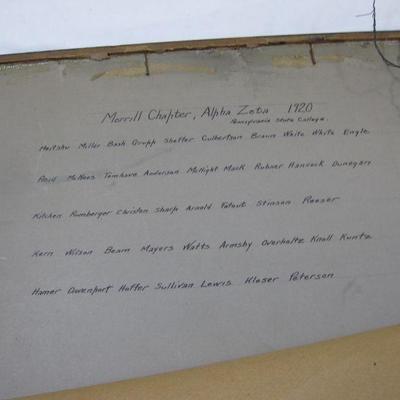 Morrill Chapter, Alpha Zeta 1920
Pennsylvania State College.
Miller Bash Grupp Shetter Culbertson Braun Waite White Engle
McNees Tomhave Anderson McKight Mack Rubner Hancock Dunegan
Kitchen Rumberger Christen Sharp Arnold Yatout Stinson Reeser
Kern Wilson Beam Mayers Watts Armsby Overholtz Knoll Kuntz
Hamer Davenport Hoffer Sullivan Lewis Kleser Peterson